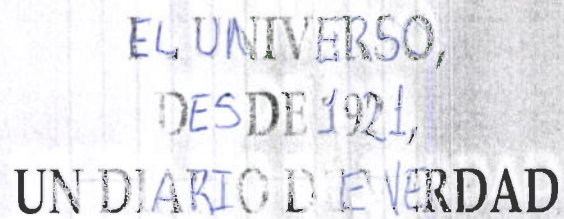 EL UNIVERSO,
DESDE 1921,
UN DIARIO DE VERDAD